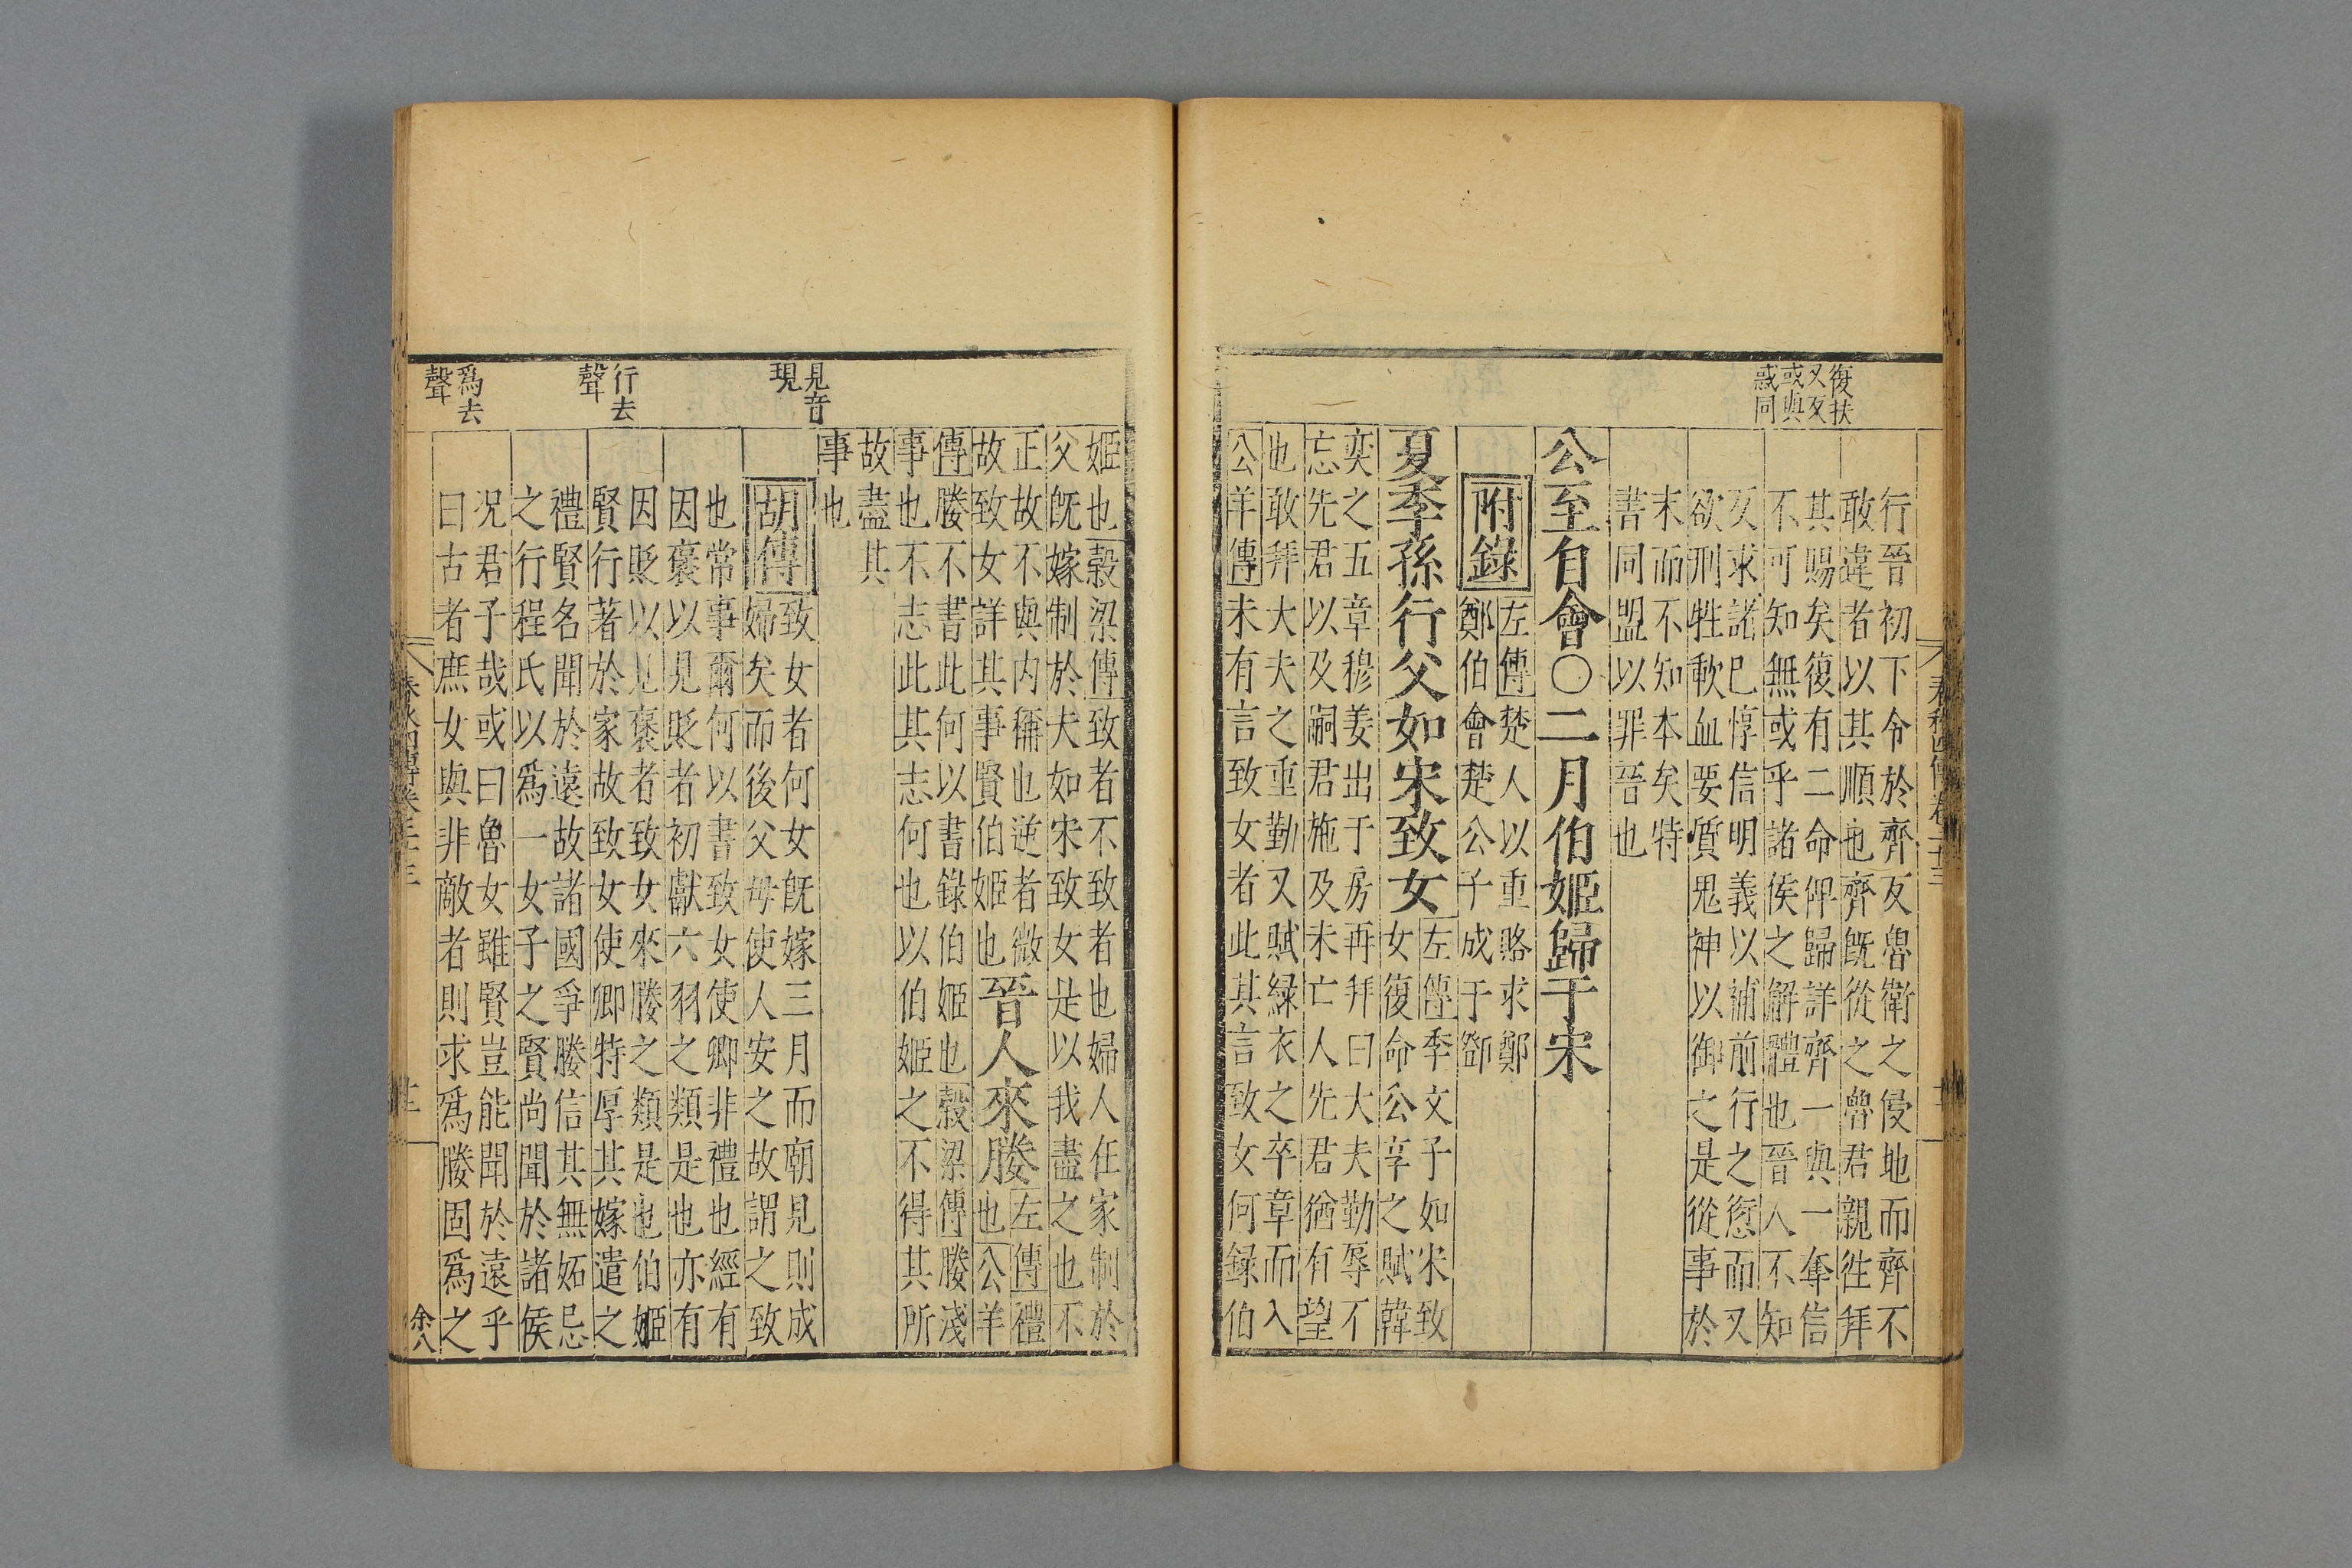 復扶
又反
或與
惑同
行晉初下令於齊反魯衛之侵地而齊不
敢違者以其順也齊既從之魯君親往拜
其賜矣復有二命俾歸諸齊一與一奪信
不可知無或乎諸侯之解體也晉人不知
反求諸已惇信明義以補前行之愆而又
欲刑牲軟血要質鬼神以御之是從事於
末而不知本矣特
書同盟以罪晉也
公至自會〇二月伯姬歸于宋
附錄
左傳楚人以重賂求鄭
鄭伯會楚公子成于鄧
夏季孫行父如宋致女
左傳季文子如宋致
女復命公享之賦韓
奕之五章穆姜出于房再拜曰大夫勤辱不
忘先君以及嗣君施及未亡人先君猶有望
也敢拜大夫之重勤又賦綠衣之卒章而入
公羊傳未有言致女者此其言致女何錄伯
姬也穀梁傳致者不致者也婦人在家制於
父既嫁制於夫如宋致女是以我盡之也不
正故不與內稱也逆者微
故致女詳其事賢伯姬也
晉人來媵
左傳禮
也公羊
傳媵不書此何以書錄伯姬也穀梁傳媵淺
事也不志此其志何也以伯姬之不得其所
故盡其
事也
見音
現
胡傳
致女者何女既嫁三月而朝見則成
婦矣而後父母使人安之故謂之致
也常事爾何以書致女使卿非禮也經有
因褒以見貶者初獻六羽之類是也亦有
因貶以見褒者致女來媵之類是也伯姬
賢行著於家故致女使卿特厚其嫁遣之
行去
聲
禮賢名聞於遠故諸國爭媵信其無妬忌
之行程氏以為一女子之賢尚聞於諸侯
況君子哉或曰魯女雖賢豈能聞於遠乎
曰古者庶女與非敵者則求為媵固為之
為去
聲
余八